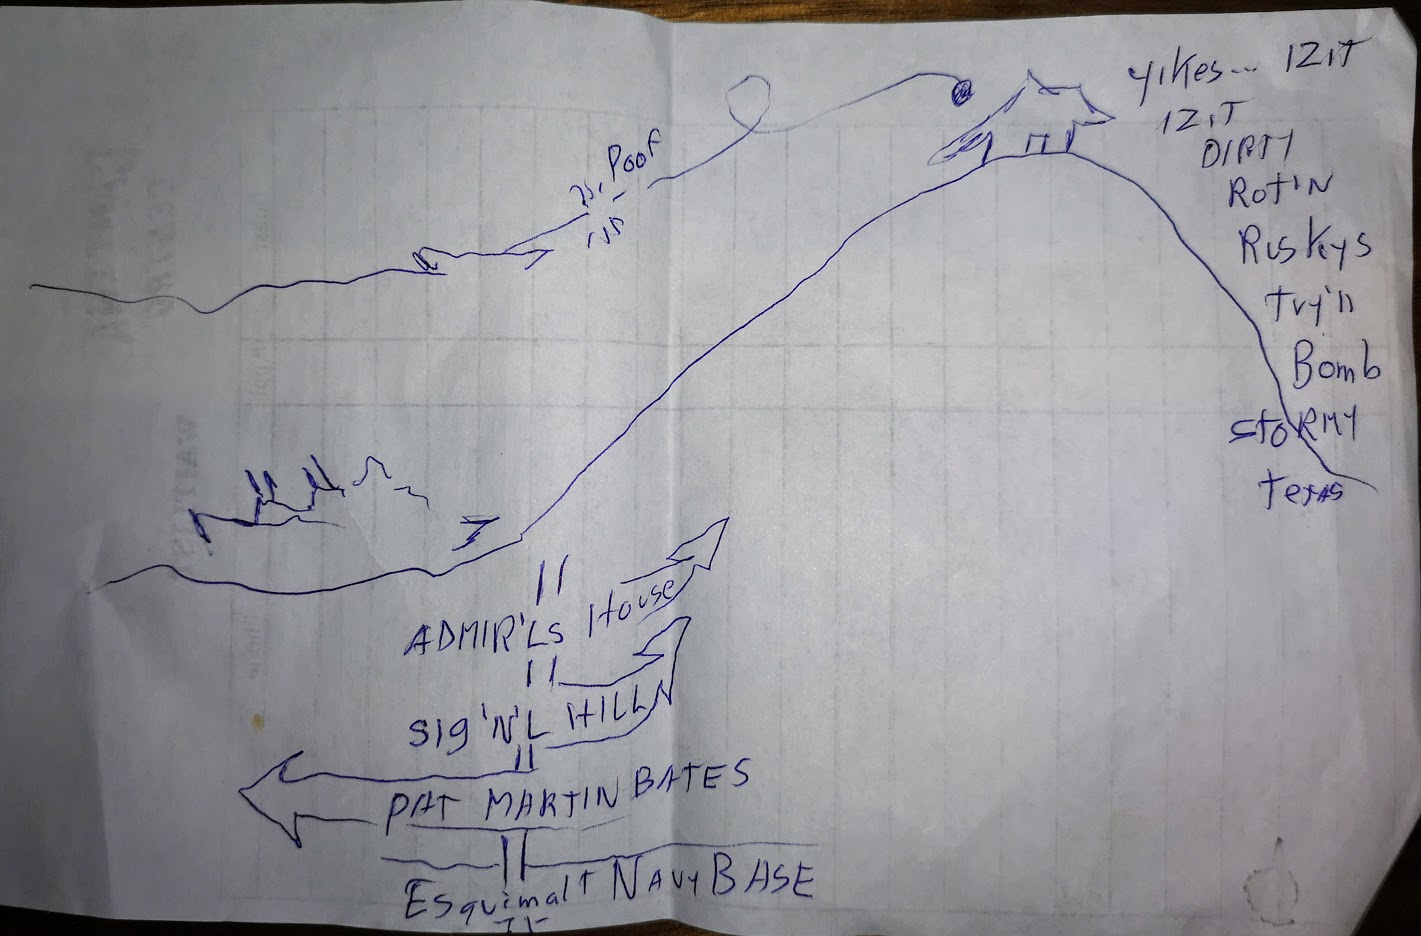 YIKES... IZIT
IZIT
DIRTY
ROT'N
RUSKYS
TRY'N
BOMB
STORMY
TEXAS
POOF
ADMIR'LS HOUSE
SIG'N'L HILL
PAT MARTIN BATES
ESQUIMALT NAVY BASE